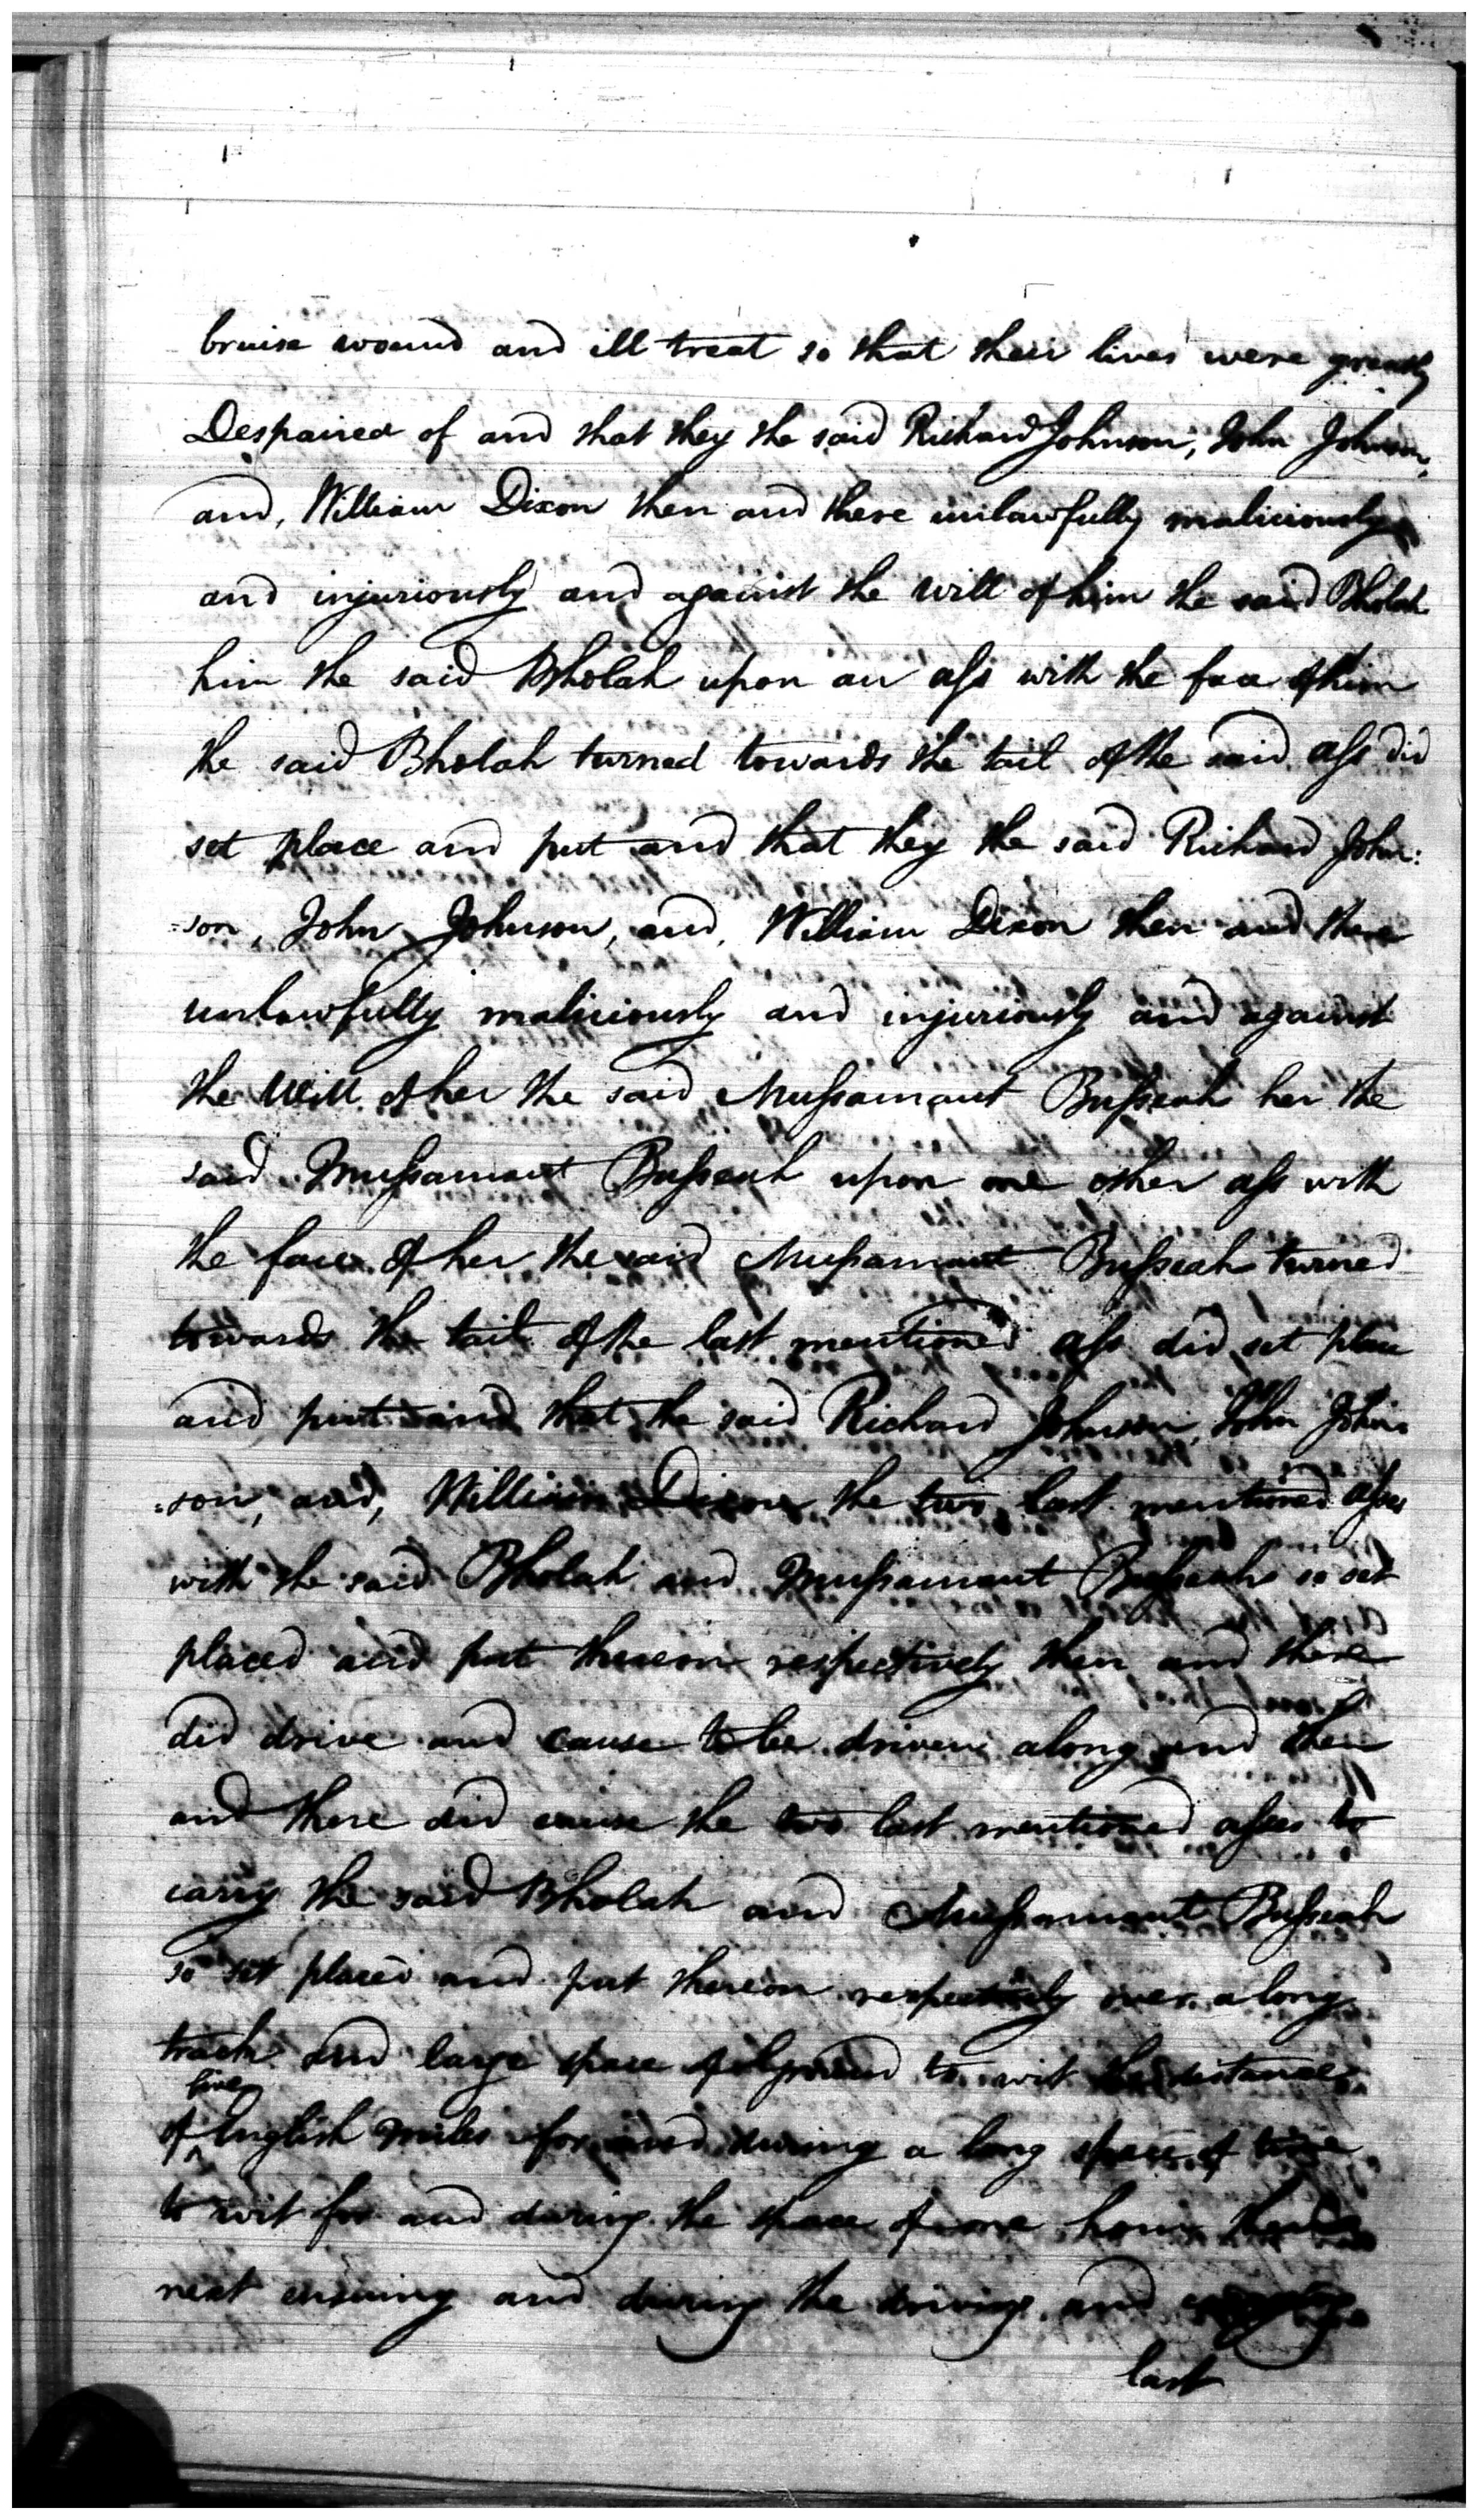 bruise wound and ill treat so that their lives were greatly
Despaired of and that they the said Richard Johnson, John Johnson,
and, William Dixon then and there unlawfully maliciously
and injuriously and against the will of him the said Bholah
him the said Bholah upon an aſs with the face of him
the said Bholah turned towards the tail of the said aſs did
set place and put and that they the said Richard John:
=son, John Johnson, and, William Dixon then and there
unlawfully maliciously and injuriously and against
the Will of her the said Muſsamaut Buſseah her the
said Muſsamaut Buſseah upon one other aſs with
the face of her the said Muſsamaut Buſseah turned
towards the tail of the last mentioned aſs did set place
and put and that the said Richard Johnson, John John=
=son, and, William Dixon the two last mentioned aſses
with the said Bholah and Muſsamaut Buſseah so set
placed and put thereon respectively then and there
did drive and cause to be driven along and then
and there did cause the two last mentioned aſses to
carry the said Bholah and Muſsamaut Buſseah
so set placed and put thereon respectively over a long
track and large space of ground to wit the distance
of five English miles for and during a long space of time
to wit for and during the space of one hour then
next ensuing and during the driving and
last